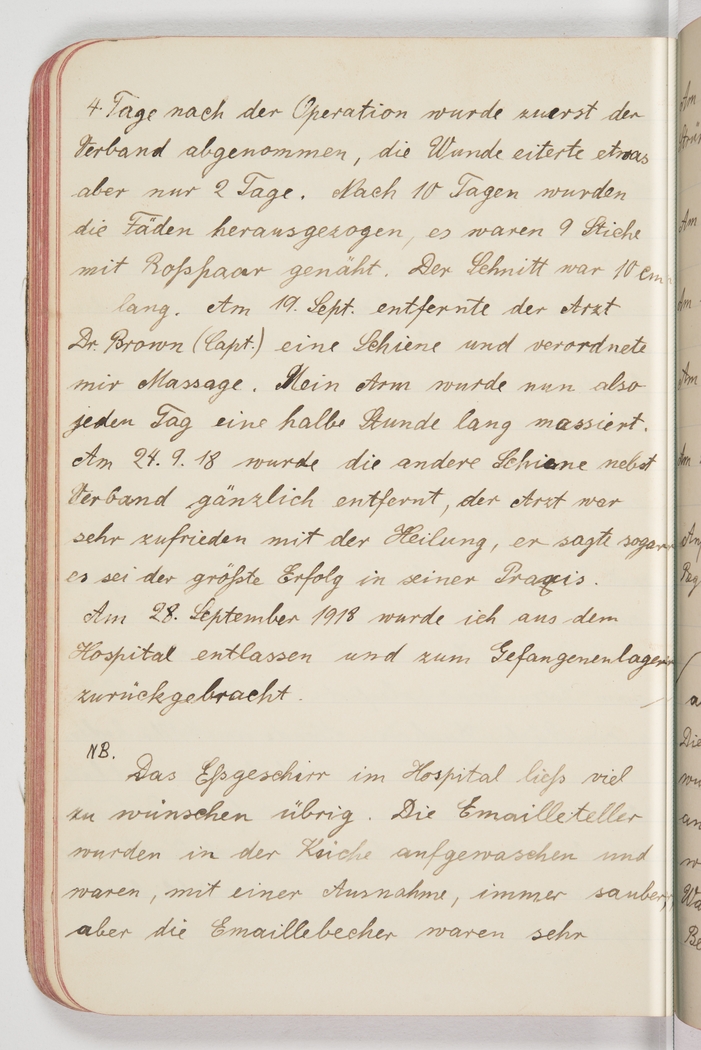 4 Tage nach der Operation wurde zuerst der
Verband abgenommen, die Wunde eiterte etwas
aber nur 2 Tage. Nach 10 Tagen wurden
die Fäden herausgezogen, es waren 9 Stiche
mit Roßhaar genäht. Der Schnitt war 10 cm
lang. Am 19. Sept. entfernte der Arzt
Dr. Brown (Capt.) eine Schiene und verordnete
mir Massage. Mein Arm wurde nun also
jeden Tag eine halbe Stunde lang massiert.
Am 24. 9. 18 wurde die andere Schiene nebst
Verband gänzlich entfernt, der Arzt war
sehr zufrieden mit der Heilung, er sagte sogar
es sei der größte Erfolg in seiner Praxis.
Am 28. September 1918 wurde ich aus dem
Hospital entlassen und zum Gefangenenlager
zurückgebracht.
NB.
Das Eßgeschirr im Hospital ließ viel
zu wünschen übrig. Die Emailleteller
wurden in der Küche aufgewaschen und
waren, mit einer Ausnahme, immer sauber,
aber die Emaillebecher waren sehr
Am
Am
Am
Am
Am
Die